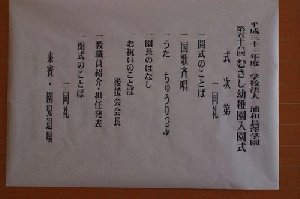 平成二十一年度 学校法人 浦和長澤学園
むさし幼稚園入園式
式次第
一同礼
一開式のことば
一国歌斉唱
一うた ちゅうりっぷ
園長のはなし
お祝いのことば
後援会会長
一教職員紹介・担任発表
一閉式のことば
一同礼
来賓・園児退場